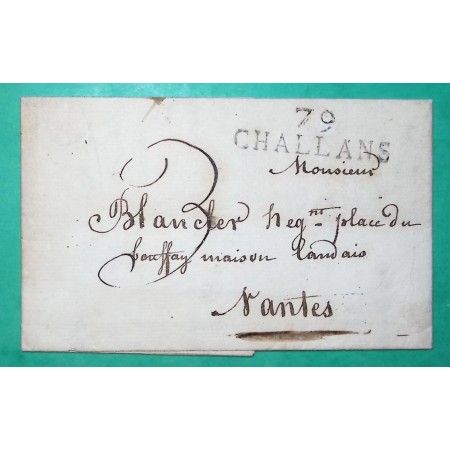 79
CHALLANS
Monsieur
3
Blancler neg.nt place du
bouffay maison landais
Nantes